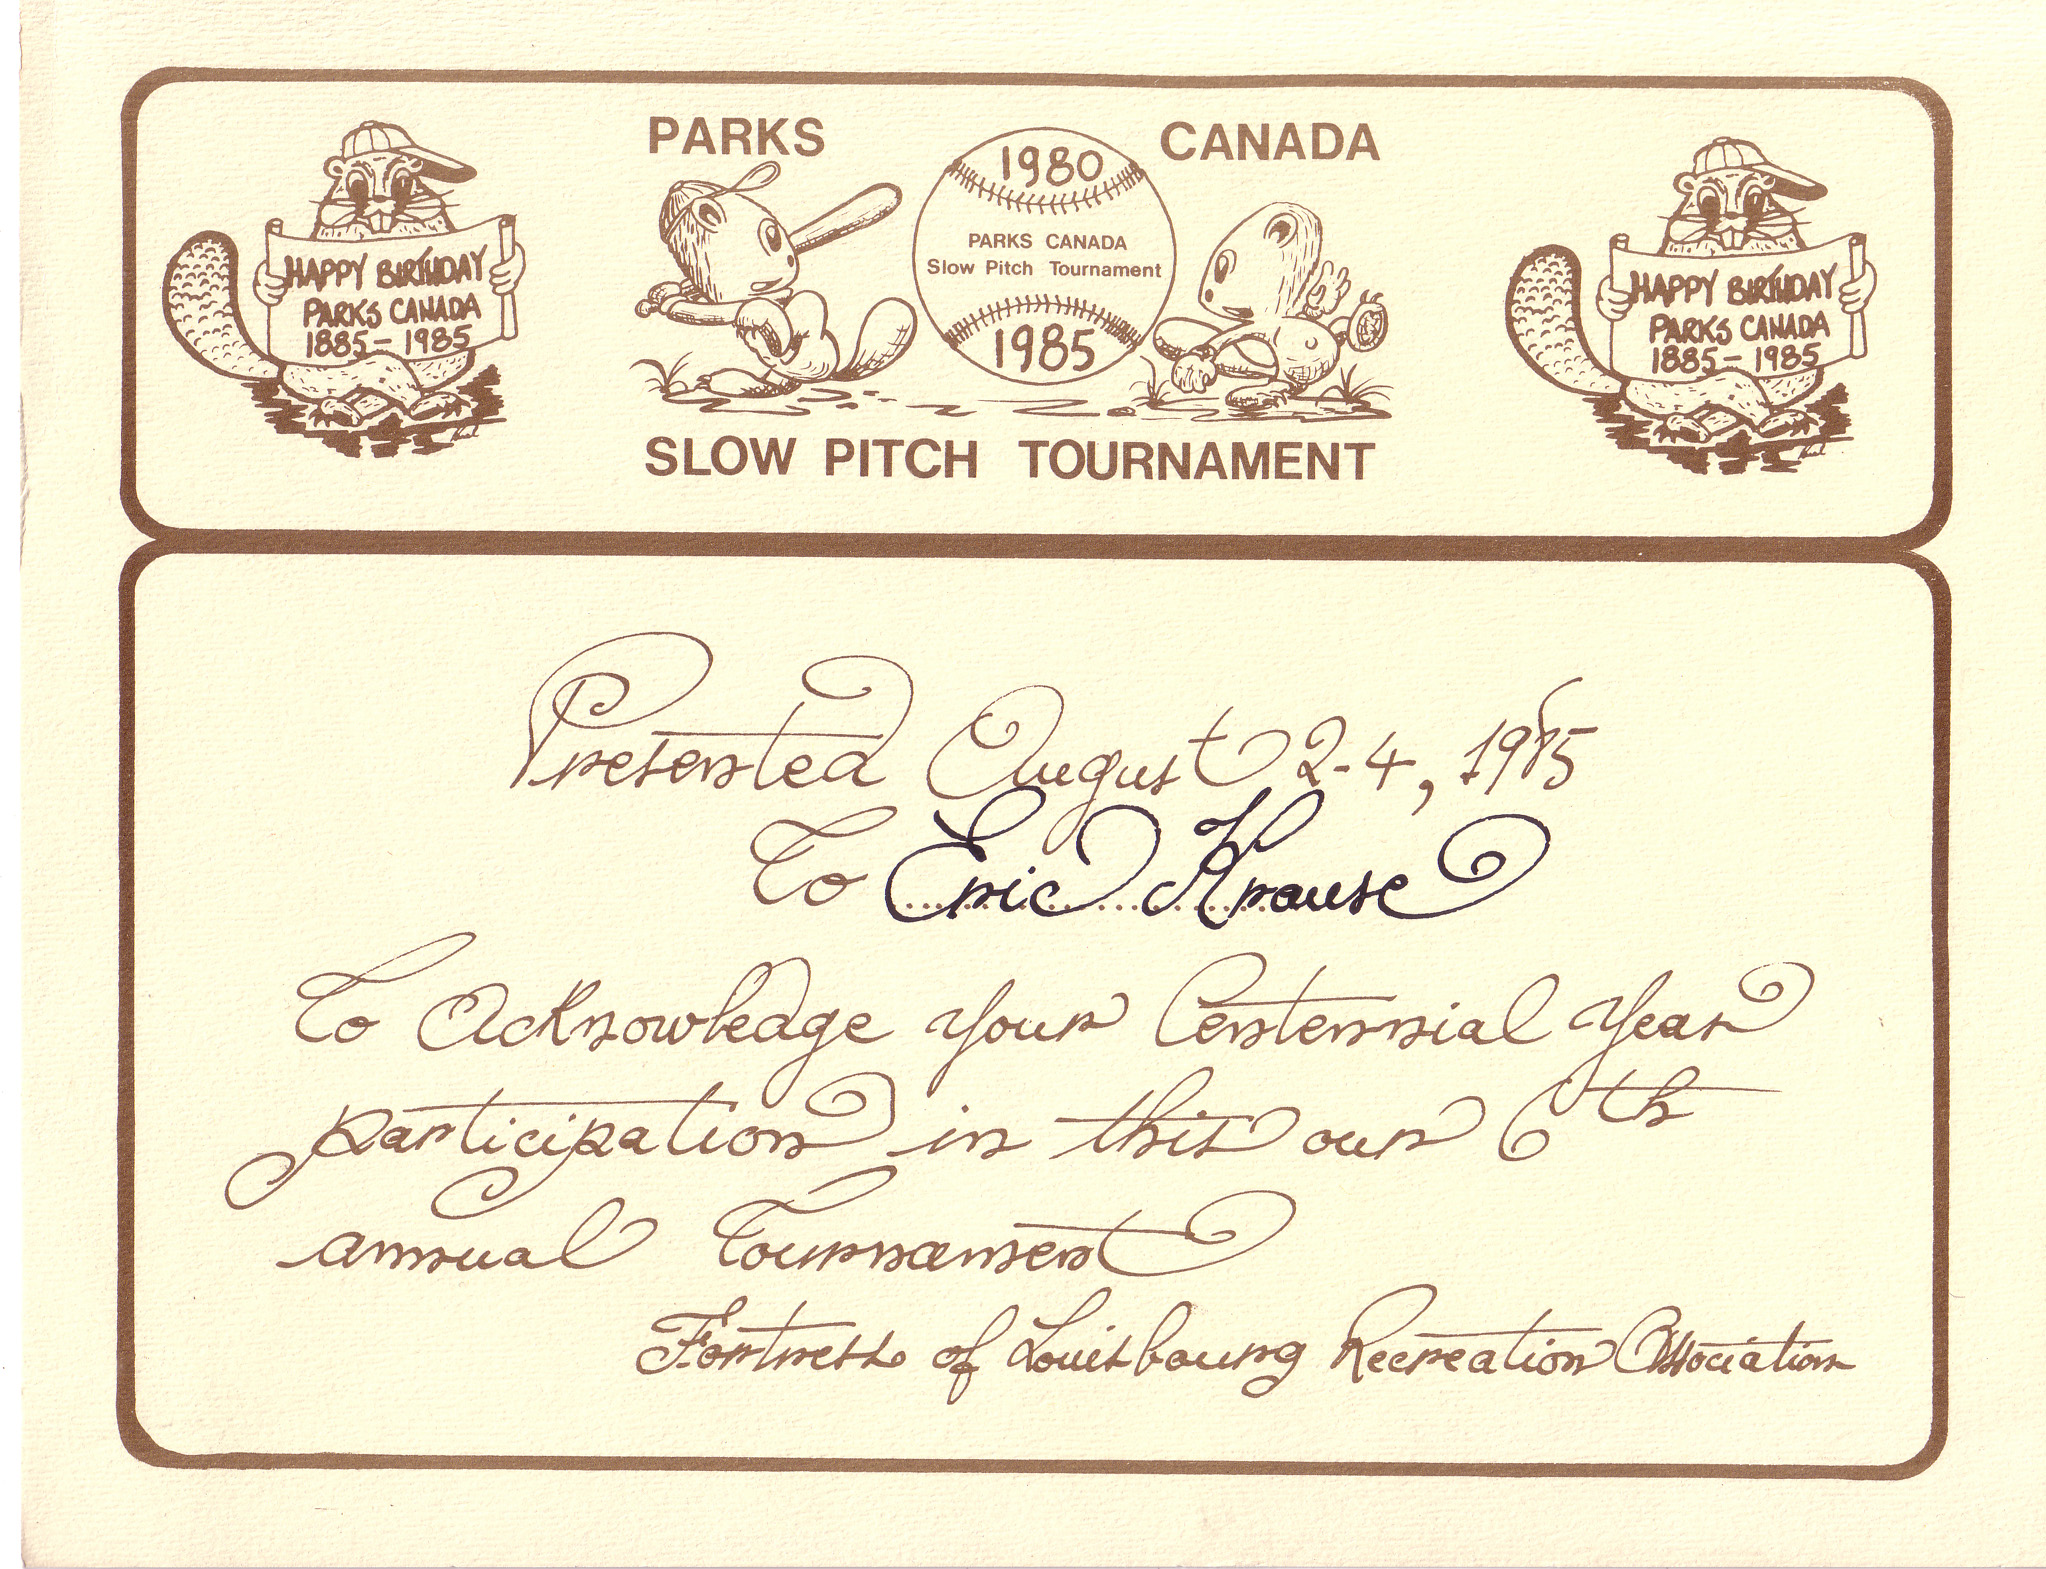 PARKS CANADA
1980
PARKS CANADA
Slow Pitch Tournament
1985
SLOW PITCH TOURNAMENT
HAPPY BIRTHDAY
PARKS CANADA
1885-1985
HAPPY BIRTHDAY
PARKS CANADA
1885-1985
Presented August 2-4, 1985
To Eric Krause
To Acknowledge your Centennial Year
participation in this our 6th
annual Tournament
Fortress of Louisbourg Recreation Association